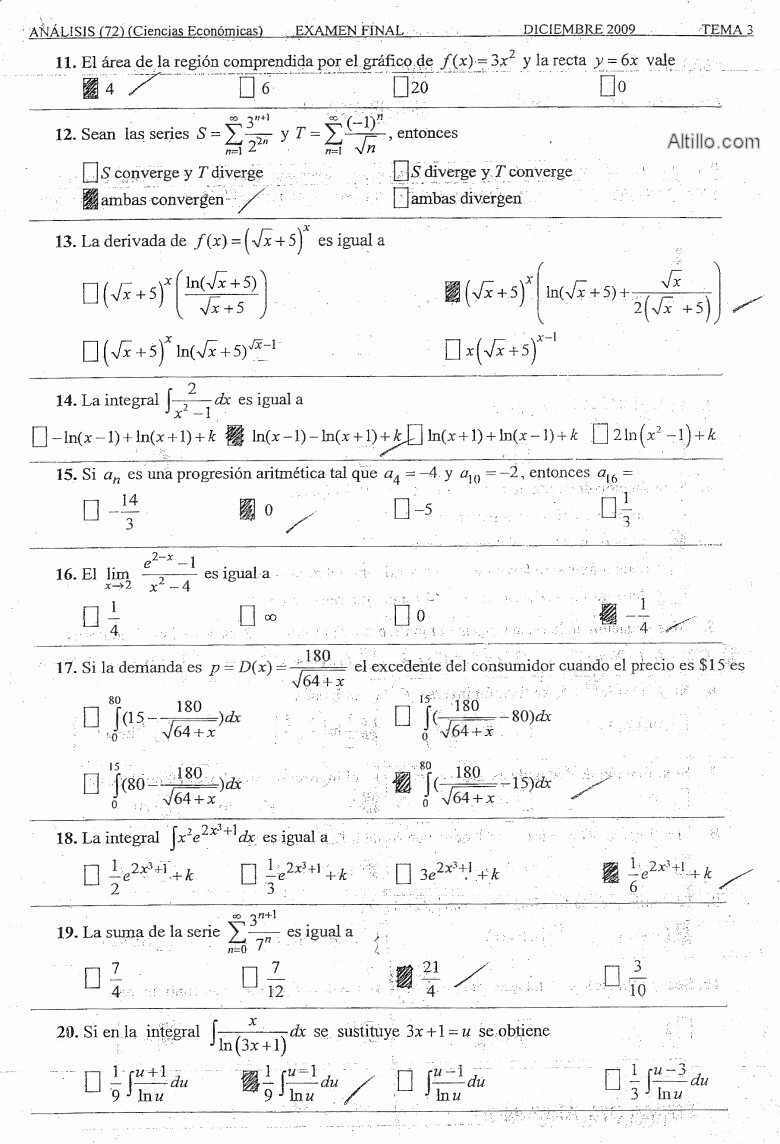 ANÁLISIS (72) (Ciencias Económicas) EXAMEN FINAL DICIEMBRE 2009 TEMA 3
11. El área de la región comprendida por el gráfico de f(x) = 3x² y la recta y = 6x vale
4 6 20 0
12. Sean las series S = ∑_{n=1}^{∞} 3^{n+1}/2^{2n} y T = ∑_{n=1}^{∞} (−1)^n/√n, entonces
Altillo.com
S converge y T diverge S diverge y T converge
ambas convergen ambas divergen
13. La derivada de f(x) = (√x + 5)^x es igual a
(√x + 5)^x (ln(√x + 5)/(√x + 5)) (√x + 5)^x (ln(√x + 5) + √x/(2(√x + 5)))
(√x + 5)^x ln(√x + 5)^{√x−1} x(√x + 5)^{x−1}
14. La integral ∫ 2/(x² − 1) dx es igual a
−ln(x − 1) + ln(x + 1) + k ln(x − 1) − ln(x + 1) + k ln(x + 1) + ln(x − 1) + k 2 ln(x² − 1) + k
15. Si a_n es una progresión aritmética tal que a_4 = −4 y a_10 = −2, entonces a_16 =
−14/3 0 −5 1/3
16. El lim_{x→2} (e^{2−x} − 1)/(x² − 4) es igual a
1/4 ∞ 0 −1/4
17. Si la demanda es p = D(x) = 180/√(64 + x) el excedente del consumidor cuando el precio es $15 es
∫_0^{80} (15 − 180/√(64 + x))dx ∫_0^{15} (180/√(64 + x) − 80)dx
∫_0^{15} (80 − 180/√(64 + x))dx ∫_0^{80} (180/√(64 + x) − 15)dx
18. La integral ∫x²e^{2x³+1}dx es igual a
1/2 e^{2x³+1} + k 1/3 e^{2x³+1} + k 3e^{2x³+1} + k 1/6 e^{2x³+1} + k
19. La suma de la serie ∑_{n=0}^{∞} 3^{n+1}/7^n es igual a
7/4 7/12 21/4 3/10
20. Si en la integral ∫ x/ln(3x + 1) dx se sustituye 3x + 1 = u se obtiene
1/9 ∫ (u + 1)/ln u du 1/9 ∫ (u − 1)/ln u du ∫ (u − 1)/ln u du 1/3 ∫ (u − 3)/ln u du